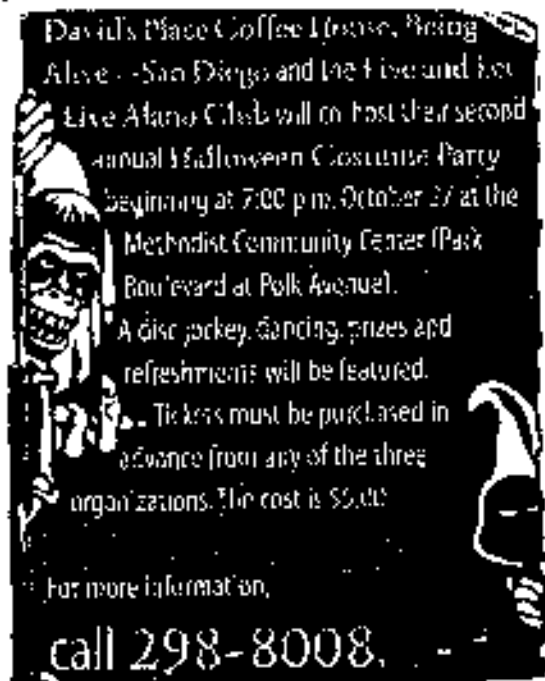 David's Place Coffee House, Being
Alive--San Diego and the Live and Let
Live Alano Club will co-host their second
annual Halloween Costume Party
beginning at 7:00 p.m. October 27 at the
Methodist Community Center (Park
Boulevard at Polk Avenue).
A disc jockey, dancing, prizes and
refreshments will be featured.
Tickets must be purchased in
advance from any of the three
organizations. The cost is
For more information,
call 298-8008.